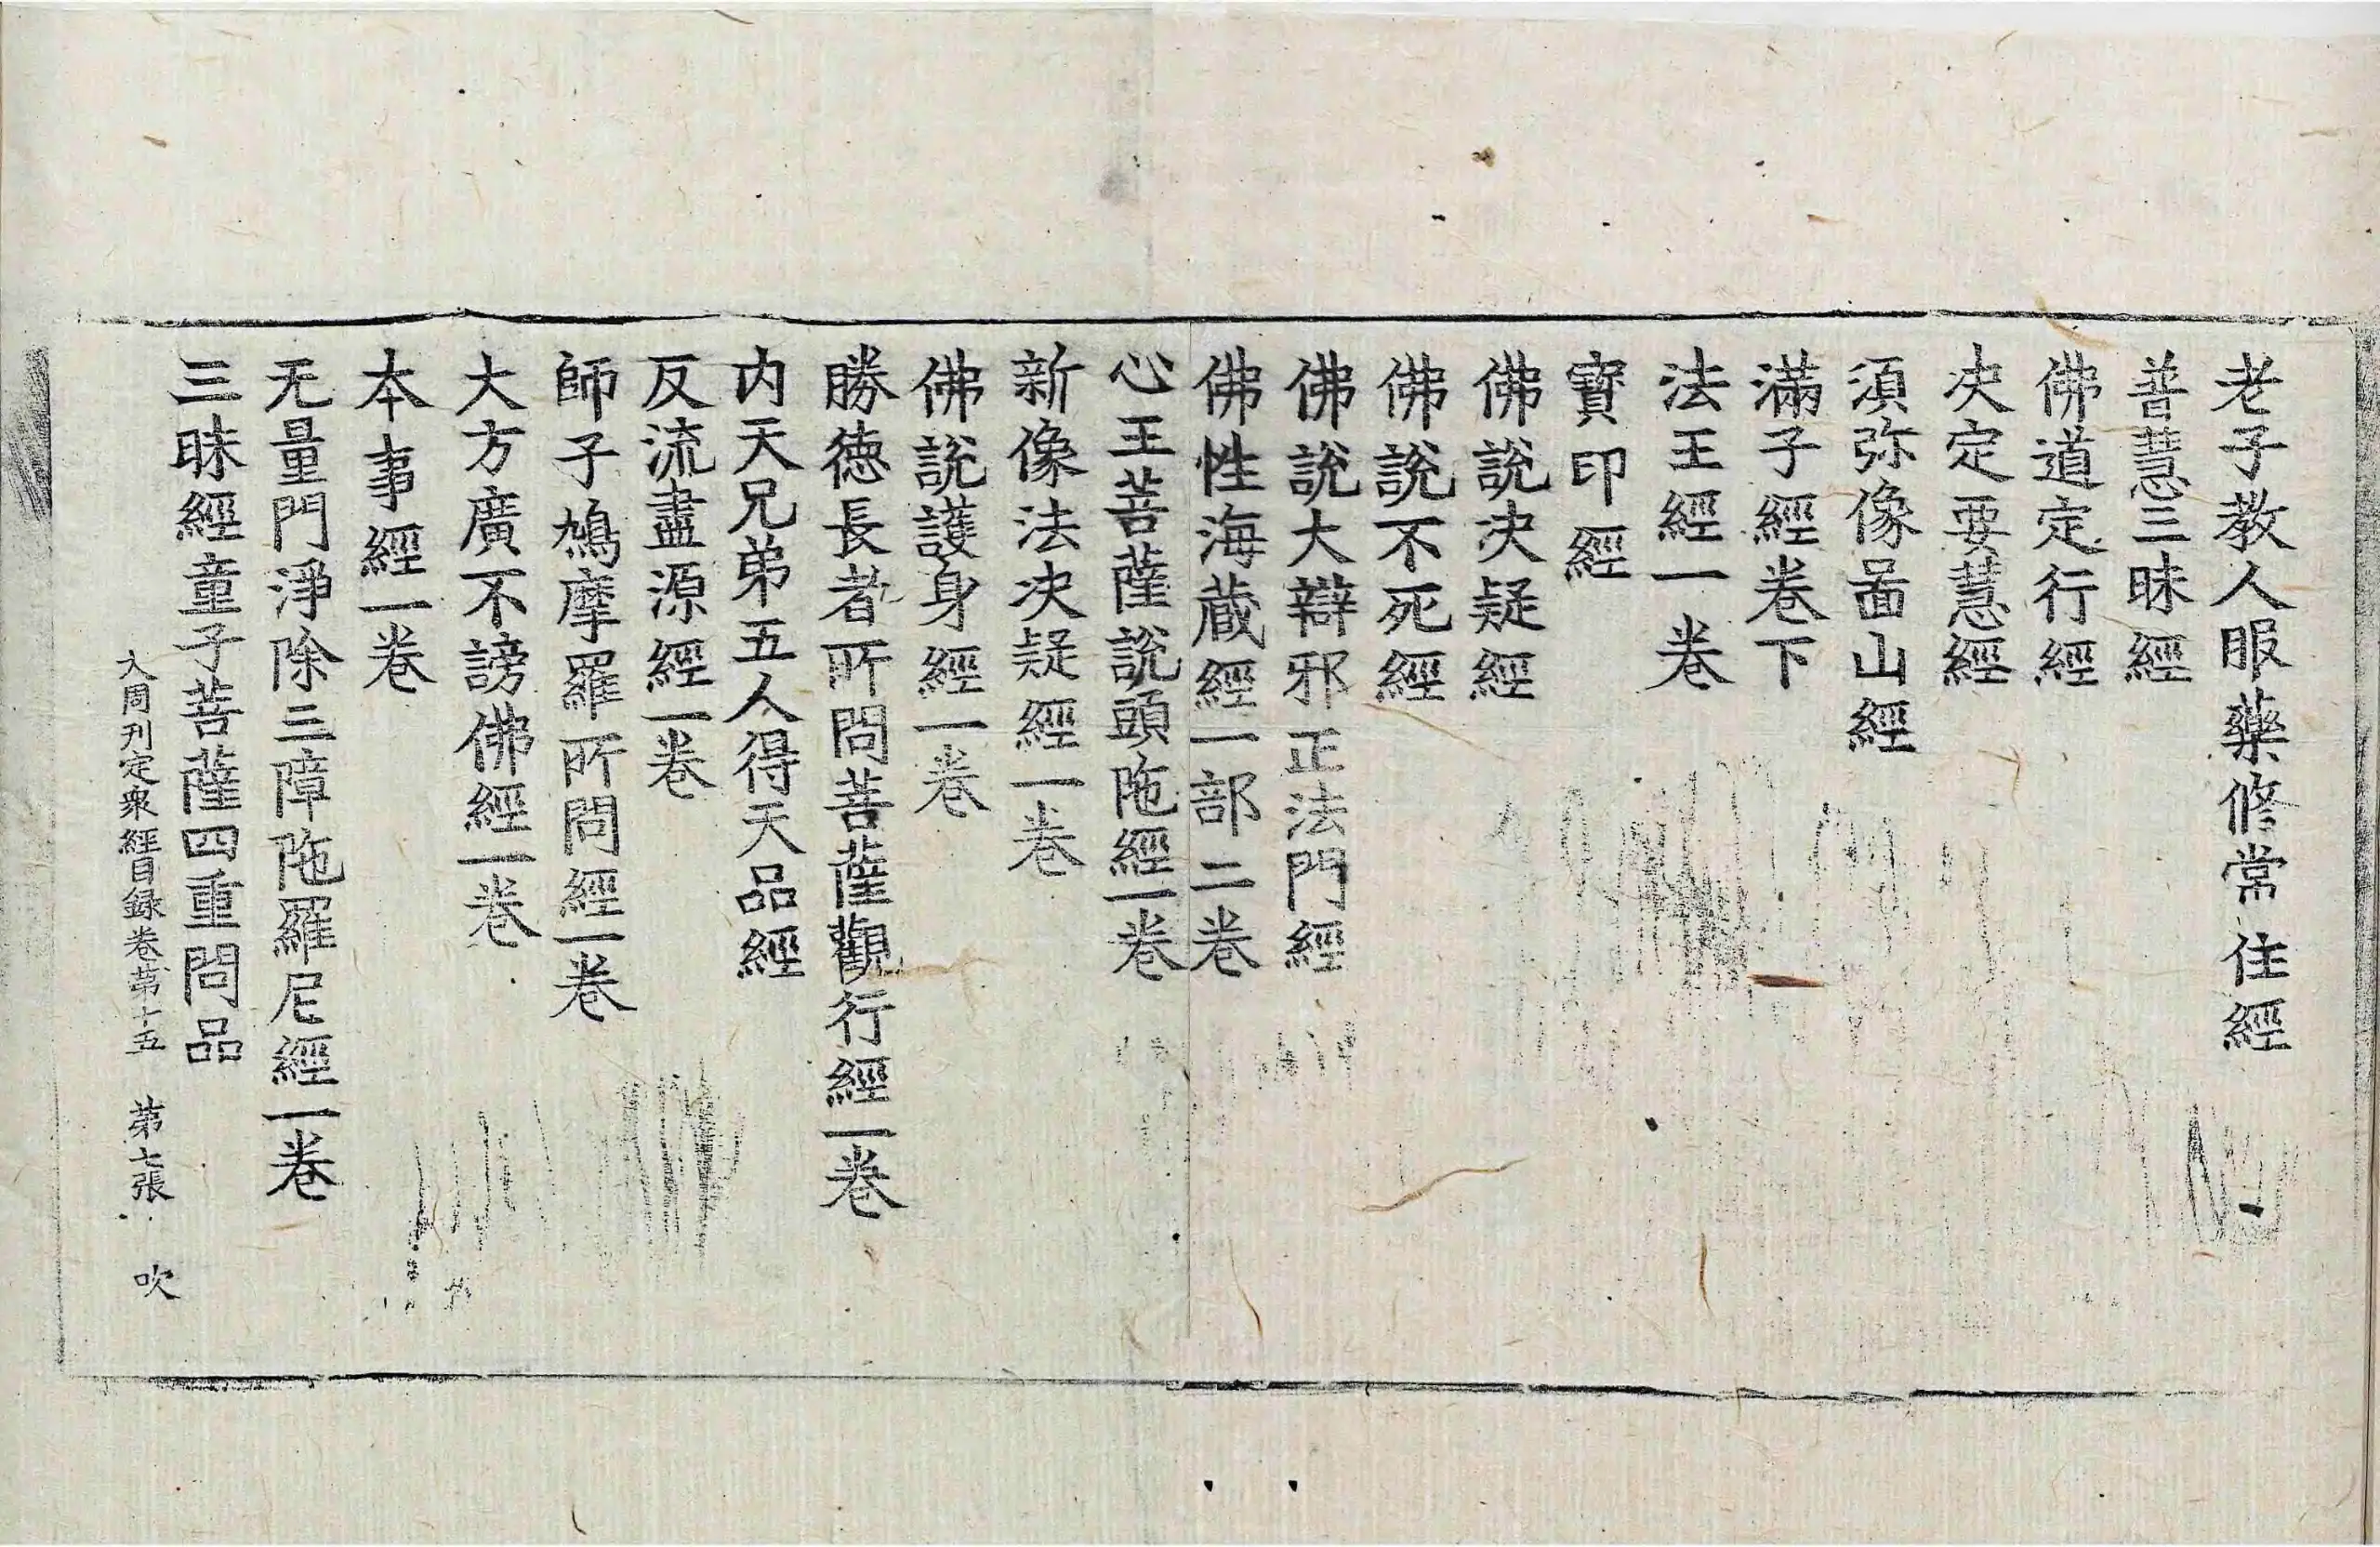 老子教人服藥修常住經
普慧三昧經
佛道定行經
决定要慧經
湏弥像啚山經
滿子經卷下
法王經一卷
寶印經
佛說决疑經
佛說不死經
佛說大辯邪正法門經
佛性海蔵經一部二卷
心王菩薩說頭陁經一卷
新像法决疑經一卷
佛說護身經一卷
勝徳長者所問菩薩觀行經一卷
内天兄弟五人得天品經
反流盡源經一卷
師子鳩摩羅所問經一卷
大方廣不謗佛經一卷
本事經一卷
无量門淨除三障陁羅尼經一卷
三昧經童子菩薩四重問品
大周刋定衆經目録卷第十五 第七張 吹